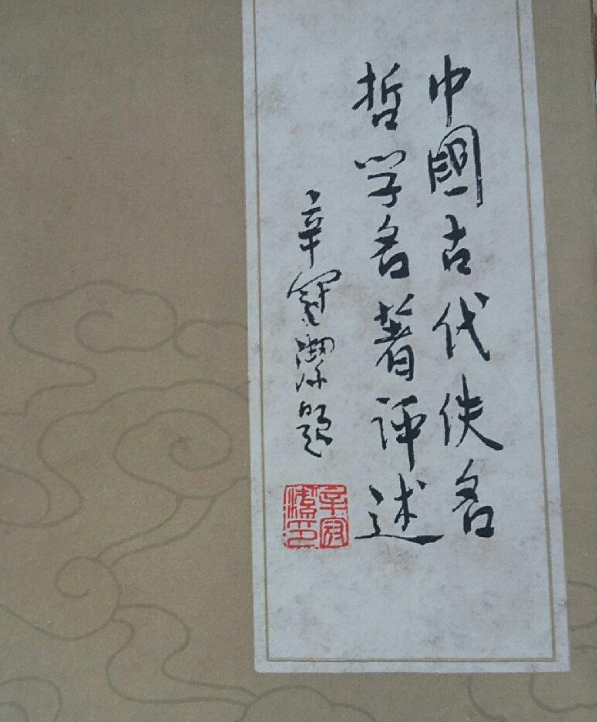 中國古代佚名
哲学名著評述
辛冠潔題
辛冠
潔印